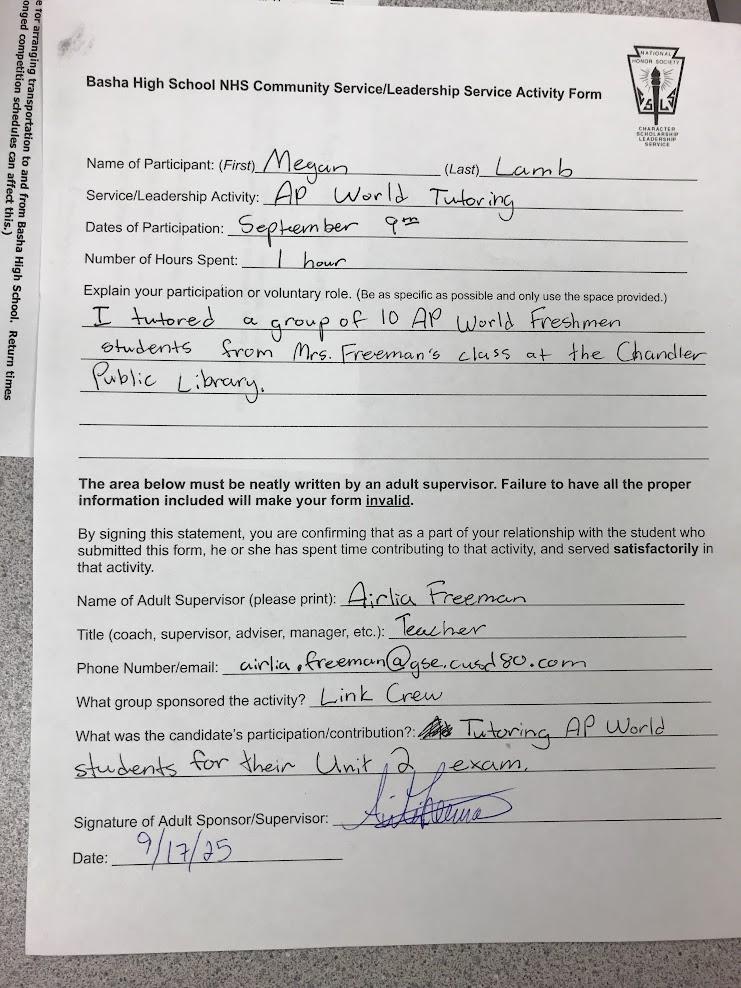 e for arranging transportation to and from Basha High School. Return times
onged competition schedules can affect this.)
NATIONAL
HONOR SOCIETY
CHARACTER
SCHOLARSHIP
LEADERSHIP
SERVICE
Basha High School NHS Community Service/Leadership Service Activity Form
Name of Participant: (First) Megan (Last) Lamb
Service/Leadership Activity: AP World Tutoring
Dates of Participation: September 9th
Number of Hours Spent: 1 hour
Explain your participation or voluntary role. (Be as specific as possible and only use the space provided.)
I tutored a group of 10 AP World Freshmen
students from Mrs. Freeman's class at the Chandler
Public Library.
The area below must be neatly written by an adult supervisor. Failure to have all the proper
information included will make your form invalid.
By signing this statement, you are confirming that as a part of your relationship with the student who
submitted this form, he or she has spent time contributing to that activity, and served satisfactorily in
that activity.
Name of Adult Supervisor (please print): Airlia Freeman
Title (coach, supervisor, adviser, manager, etc.): Teacher
Phone Number/email: airlia.freeman@gse.cusd80.com
What group sponsored the activity? Link Crew
What was the candidate's participation/contribution?: Tutoring AP World
students for their Unit 2 exam.
Signature of Adult Sponsor/Supervisor:
Date: 9/17/25